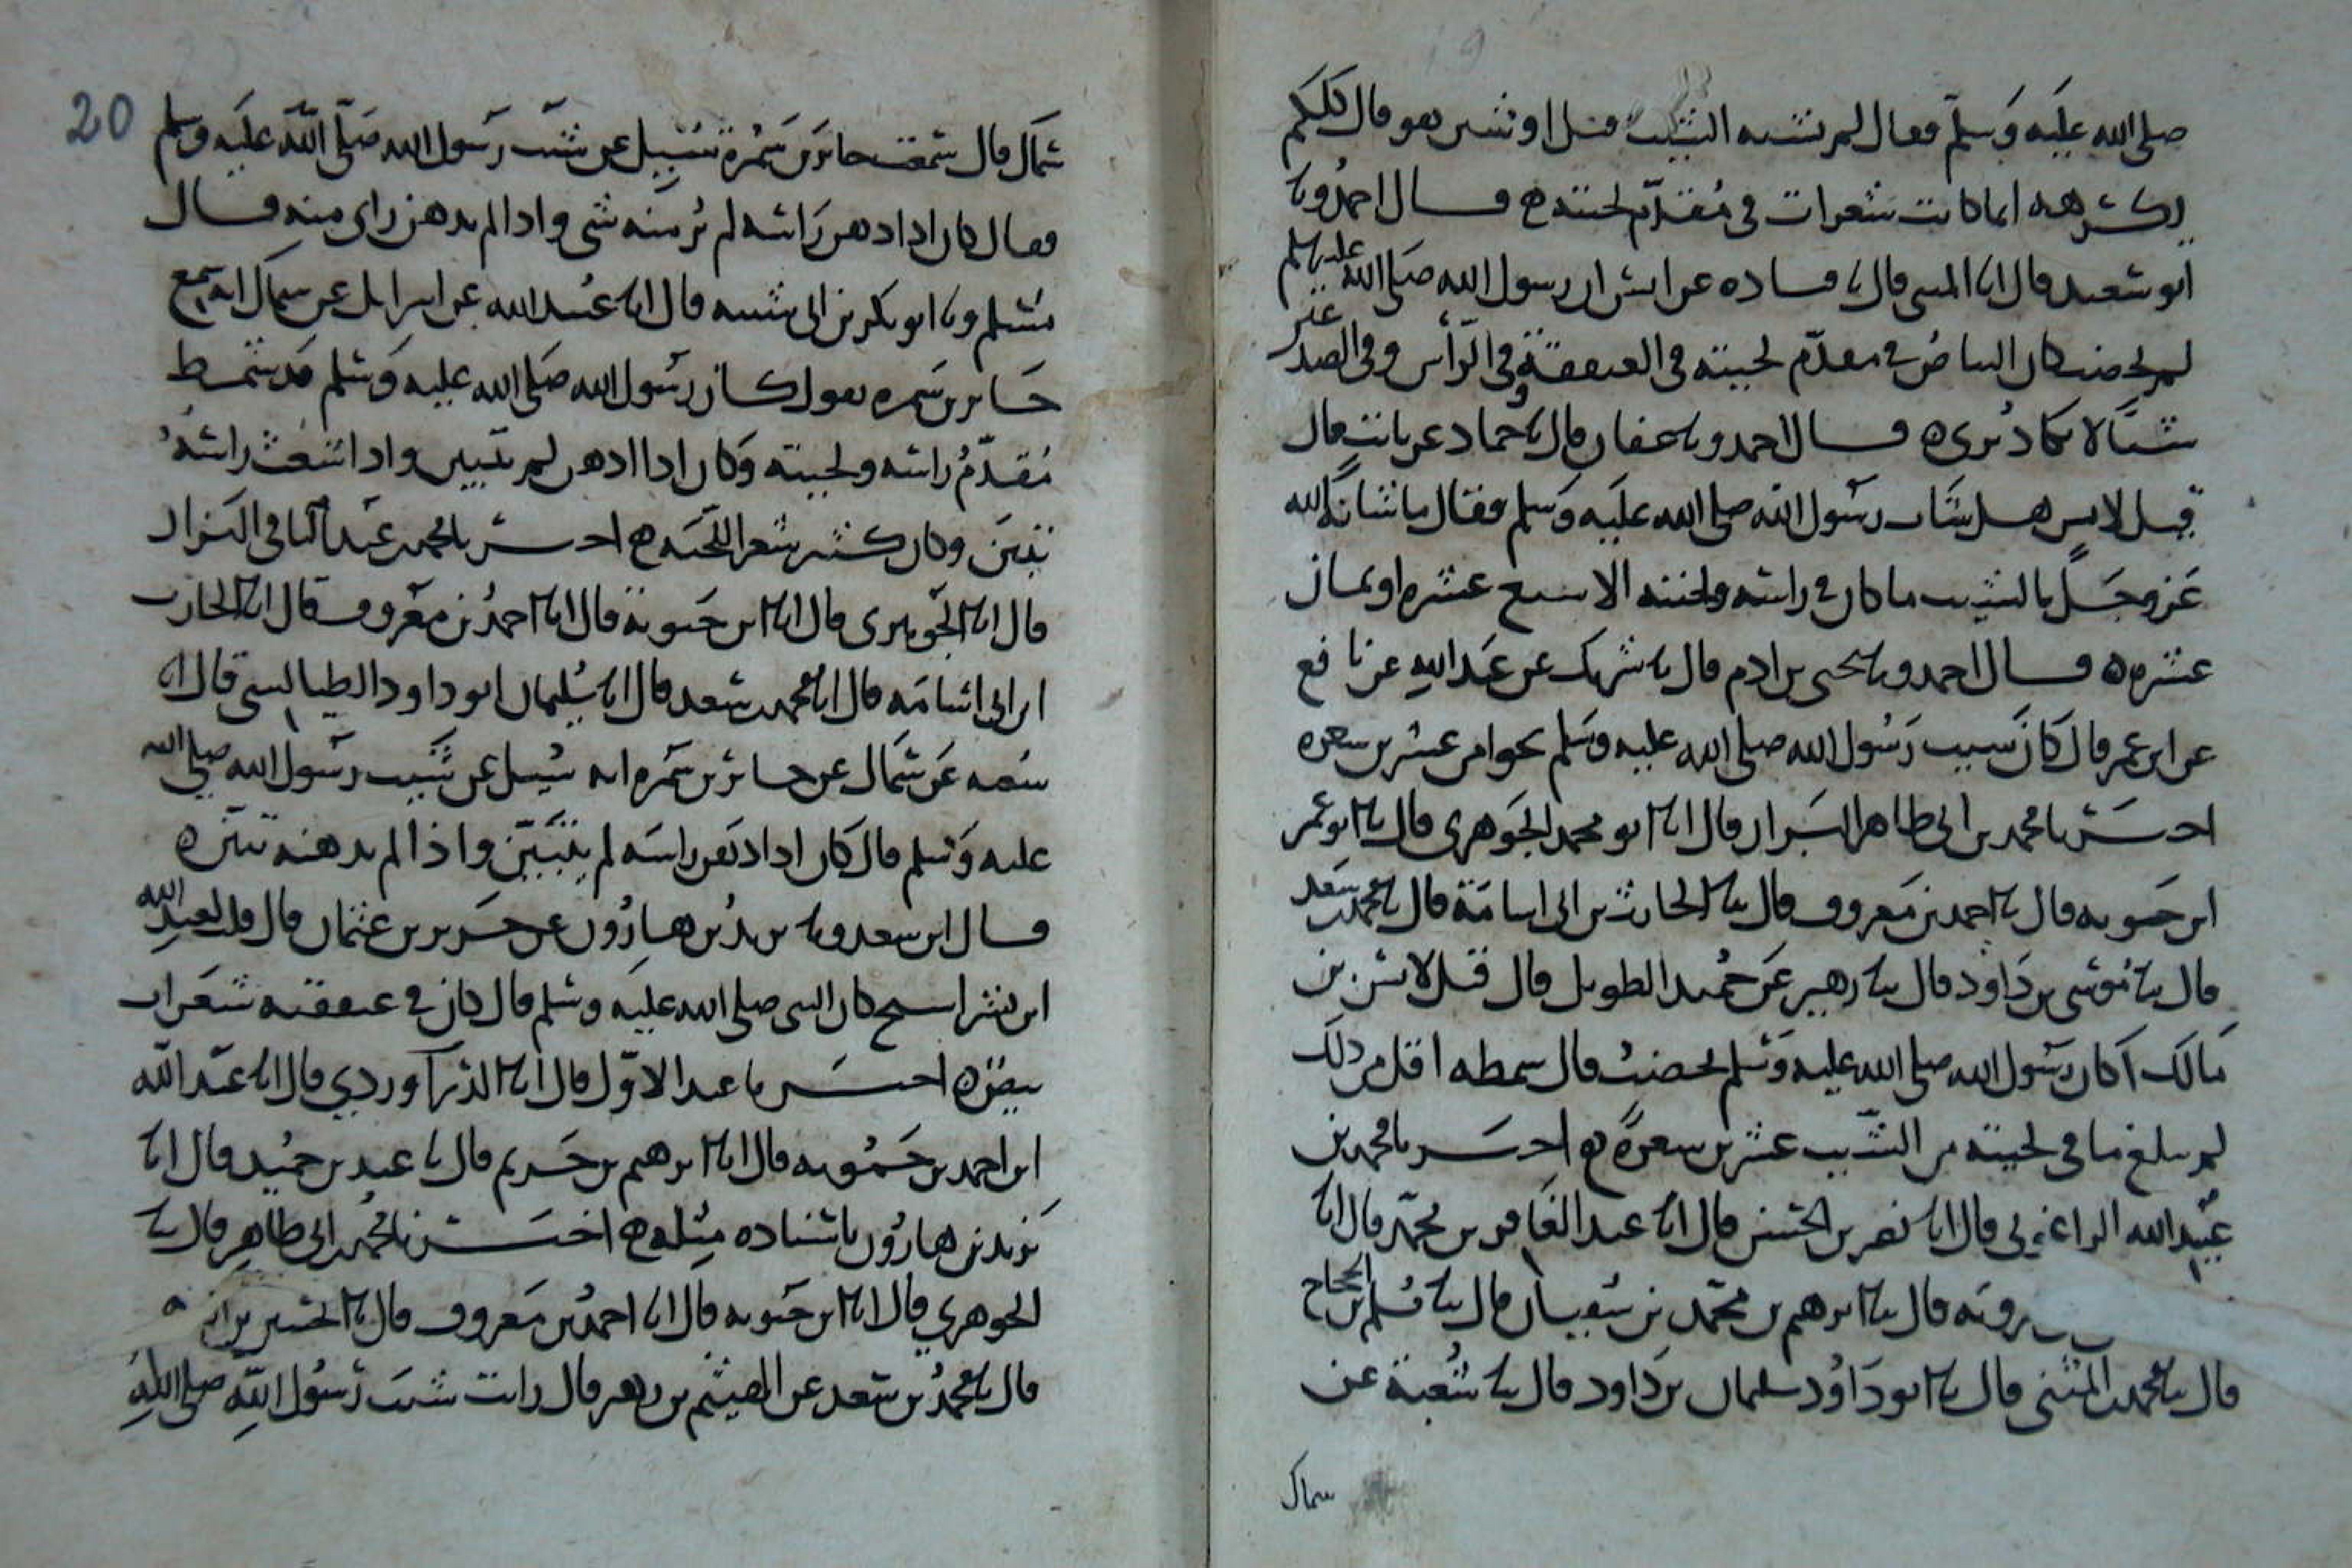 صلى الله عليه وسلم فقال لم يشنه الشيب قيل او شين هو قال كلكم
يكرهه انما كانت شعرات في مقدم لحيته ح قال احمد ونا
ابو سعيد قال انا المثنى قال نا قتادة عن انس ان رسول الله صلى الله عليه وسلم
لم يخضب كان البياض في مقدم لحيته في العنفقة وفي الرأس وفي الصدغين
شيئا لا يكاد يرى ه قال احمد ونا عفان قال نا حماد عن ثابت قال
قيل لانس هل شاب رسول الله صلى الله عليه وسلم فقال ما شانه الله
عز وجل بالشيب ما كان في راسه ولحيته الا سبع عشرة او ثمان
عشرة ه قال احمد ونا يحيى بن ادم قال نا شريك عن عبد الله عن نافع
عن ابن عمر قال كان شيب رسول الله صلى الله عليه وسلم نحوا من عشرين شعرة
اخبرنا محمد بن ابي طاهر البزار قال انا ابو محمد الجوهري قال نا ابو عمر
ابن حيويه قال نا احمد بن معروف قال نا الحارث بن ابي اسامة قال نا محمد بن سعد
قال نا موسى بن داود قال نا زهير عن حميد الطويل قال قيل لانس بن
مالك اكان رسول الله صلى الله عليه وسلم يخضب قال شمطه اقل من ذلك
لم يبلغ ما في لحيته من الشيب عشرين شعرة ح اخبرنا محمد بن
عبيد الله الزاغوني قال انا نصر بن الحسن قال انا عبد الغافر بن محمد قال انا
قال نا ابرهيم بن محمد بن سفيان قال نا مسلم بن الحجاج
قال نا محمد بن المثنى قال نا ابو داود سليمان بن داود قال نا شعبة عن
سماك
20
سماك قال سمعت جابر بن سمرة سئل عن شيب رسول الله صلى الله عليه وسلم
فقال كان اذا دهن راسه لم ير منه شي واذا لم يدهن راي منه قال
مسلم ونا ابو بكر بن ابي شيبة قال انا عبيد الله عن اسرايل عن سماك انه سمع
جابر بن سمره يقول كان رسول الله صلى الله عليه وسلم قد شمط
مقدم راسه ولحيته وكان اذا ادهن لم يتبين واذا شعث راسه
تبين وكان كثير شعر اللحية ح اخبرنا محمد بن عبد الباقي البزار
قال انا الجوهري قال انا ابن حيوية قال انا احمد بن معروف قال انا الحارث
ابن ابي اسامه قال انا محمد بن سعد قال انا سليمان ابو داود الطيالسي قال انا
شعبه عن سماك عن جابر بن سمره انه سئل عن شيب رسول الله صلى الله
عليه وسلم قال كان اذا دهن راسه لم يتبين واذا لم يدهنه تبين ه
قال ابن سعد ونا يزيد بن هارون عن حريز بن عثمان قال قلت لعبد الله
ابن بسر اشيخ كان النبي صلى الله عليه وسلم قال كان في عنفقته شعرات
بيض ه اخبرنا عبد الاول قال انا الدراوردي قال انا عبد الله
ابن احمد بن حمويه قال انا ابرهيم بن خريم قال نا عبد بن حميد قال انا
يزيد بن هارون باسناده مثله ح اخبرنا محمد بن ابي طاهر قال نا
الجوهري قال انا ابن حيويه قال انا احمد بن معروف قال نا
قال نا محمد بن سعد عن الهيثم بن دهر قال رايت شيب رسول الله صلى الله